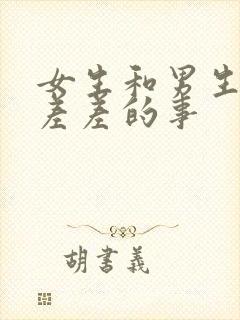 女生和男生
差差的事
胡書義